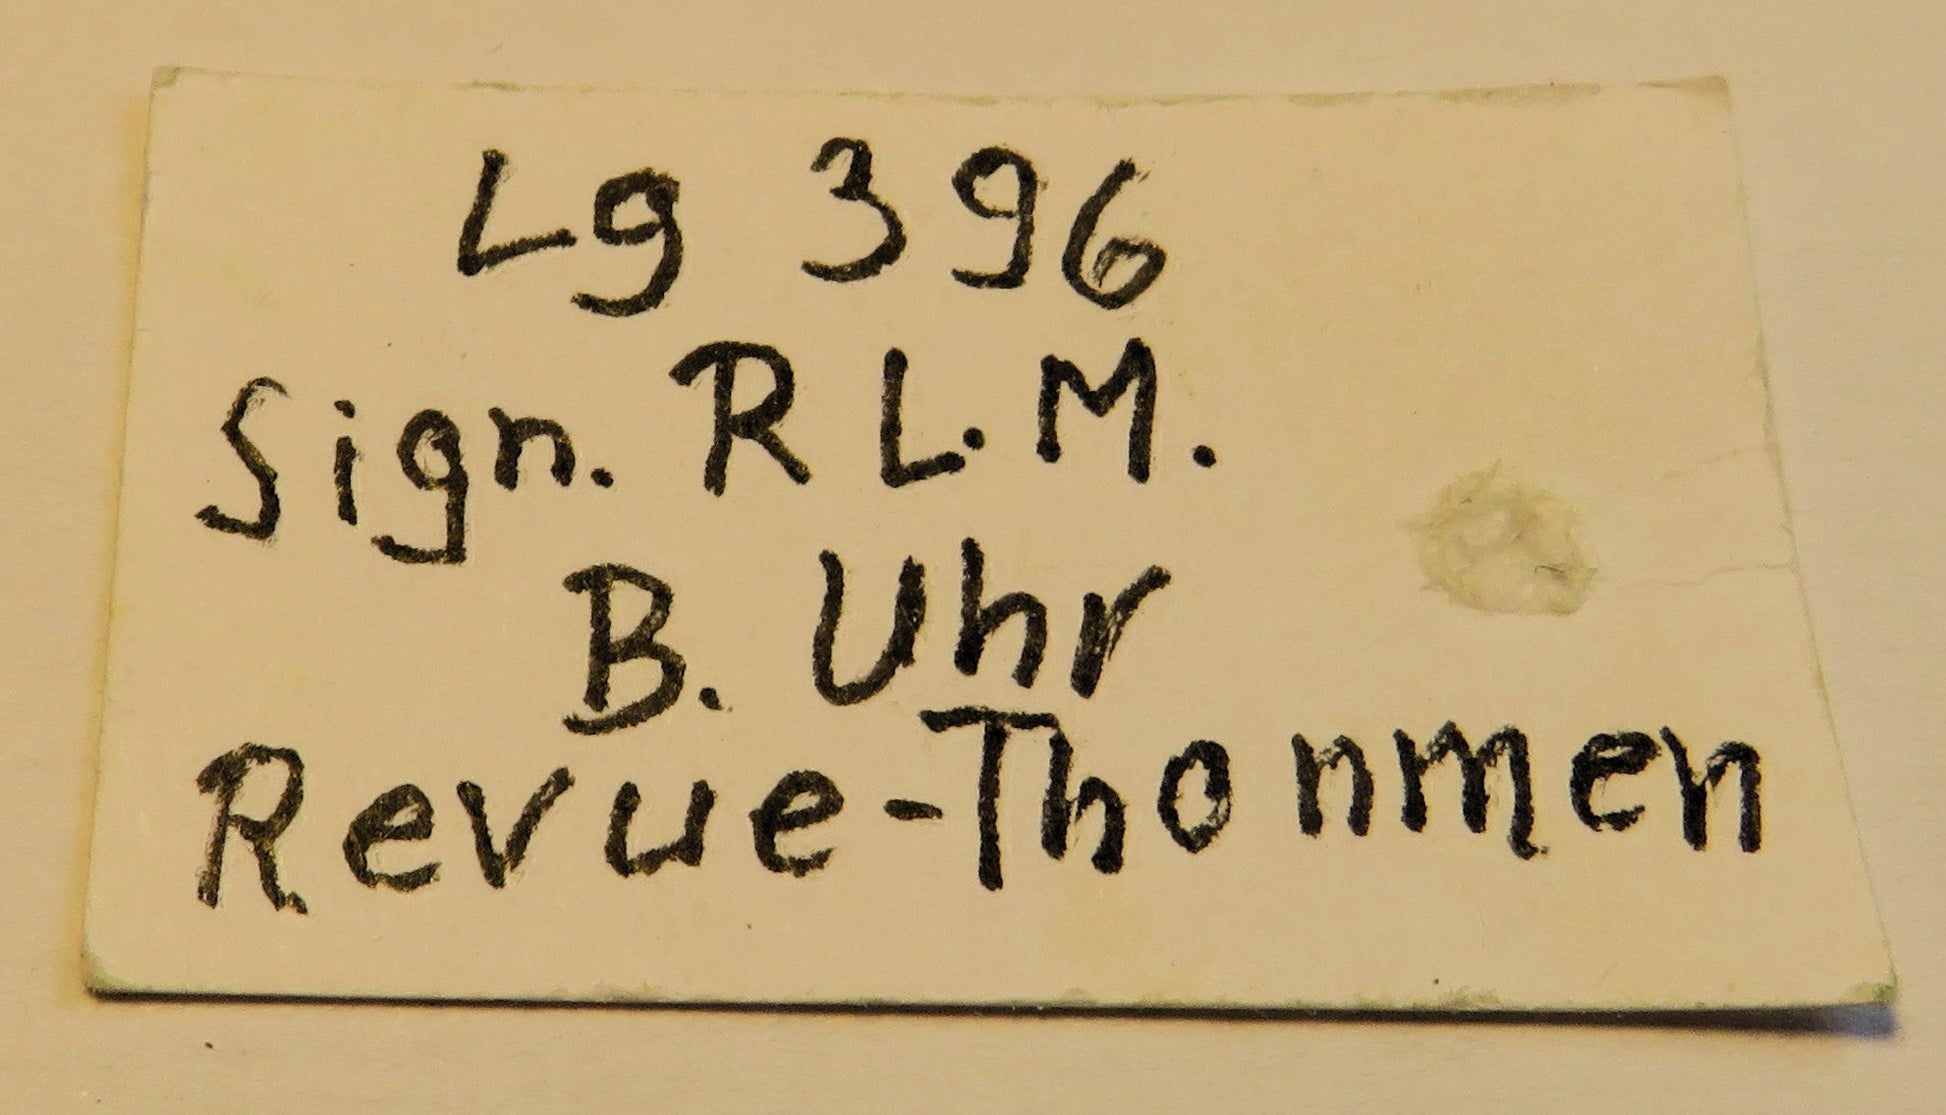 Lg 396
Sign. R L.M.
B. Uhr
Revue-Thonmen